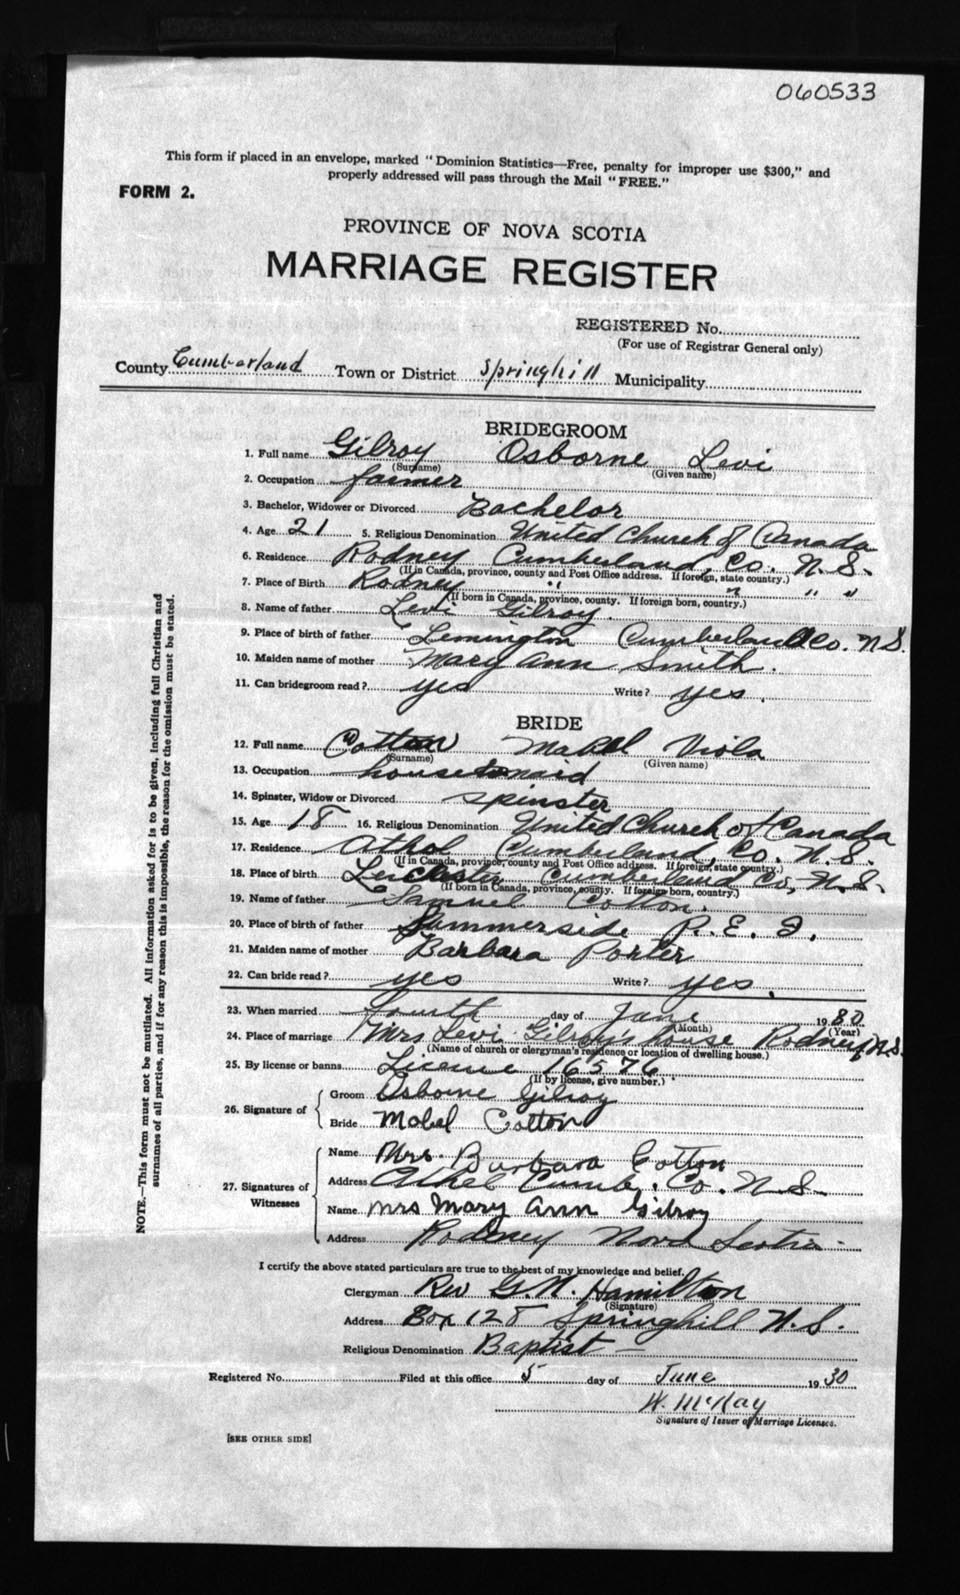 060533
This form if placed in an envelope, marked "Dominion Statistics—Free, penalty for improper use $300," and
properly addressed will pass through the Mail "FREE."
FORM 2.
PROVINCE OF NOVA SCOTIA
MARRIAGE REGISTER
REGISTERED No.
(For use of Registrar General only)
County Cumberland Town or District Springhill Municipality
BRIDEGROOM
1. Full name Gilroy Osborne Levi
(Surname) (Given name)
2. Occupation farmer
3. Bachelor, Widower or Divorced Bachelor
4. Age 21 5. Religious Denomination United Church of Canada
6. Residence Rodney Cumberland, Co. N.S.
(If in Canada, province, county and Post Office address. If foreign, state country.)
7. Place of Birth Rodney " " " "
(If born in Canada, province, county. If foreign born, country.)
8. Name of father Levi Gilroy.
9. Place of birth of father Lemington Cumberland Co. N.S.
10. Maiden name of mother Mary Ann Smith.
11. Can bridegroom read? yes Write? yes.
BRIDE
12. Full name Cotton Mabel Viola
(Surname) (Given name)
13. Occupation housemaid
14. Spinster, Widow or Divorced spinster
15. Age 18 16. Religious Denomination United Church of Canada
17. Residence Athol Cumberland, Co. N.S.
(If in Canada, province, county and Post Office address. If foreign, state country.)
18. Place of birth Leicester Cumberland Co, N.S.
(If born in Canada, province, county. If foreign born, country.)
19. Name of father Samuel Cotton.
20. Place of birth of father Summerside P.E.I.
21. Maiden name of mother Barbara Porter
22. Can bride read? yes Write? yes.
23. When married fourth day of June 1930
(Month) (Year)
24. Place of marriage Mrs Levi Gilroy's house Rodney N.S.
(Name of church or clergyman's residence or location of dwelling house.)
25. By license or banns License 16576
(If by license, give number.)
26. Signature of
Groom Osborne Gilroy
Bride Mabel Cotton
27. Signatures of Witnesses
Name Mrs. Barbara Cotton
Address Athol Cumb. Co. N.S.
Name Mrs Mary Ann Gilroy
Address Rodney Nova Scotia
I certify the above stated particulars are true to the best of my knowledge and belief.
Clergyman Rev G.N. Hamilton
(Signature)
Address Box 128 Springhill N.S.
Religious Denomination Baptist —
Registered No. Filed at this office 5 day of June 1930
W. McKay
Signature of Issuer of Marriage Licenses.
[SEE OTHER SIDE]
NOTE.—This form must not be mutilated. All information asked for is to be given, including full Christian and
surnames of all parties, and if for any reason this is impossible, the reason for the omission must be stated.